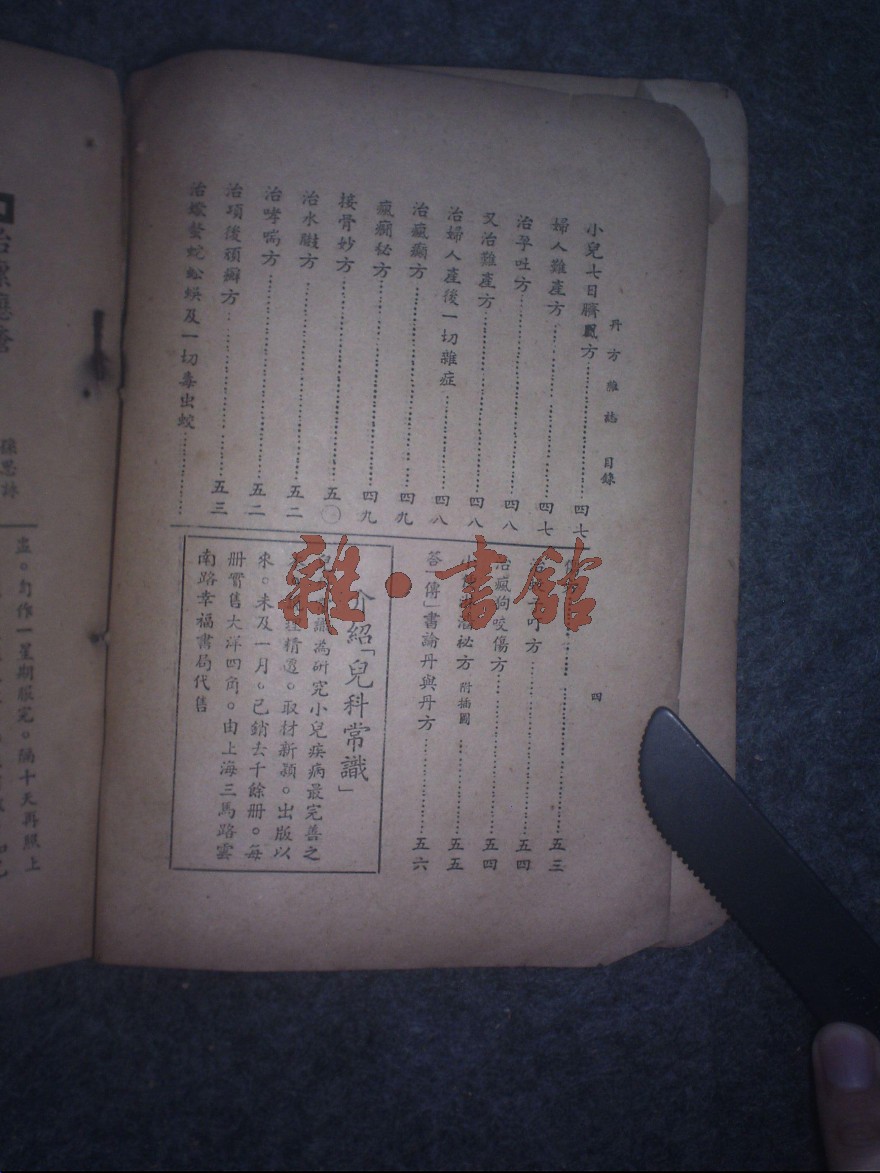 丹方雜誌 目錄
四
小兒七日臍風方 四七
婦人難產方 四七
治孕吐方 四八
又治難產方 四八
治婦人產後一切雜症 四八
治瘋癲方 四九
瘋癲秘方 四九
接骨妙方 五〇
治水臌方 五二
治哮喘方 五二
治項後頑癬方 五三
治蠍螫蛇蚣蜈及一切毒虫蛟
五三
方 五四
治瘋狗咬傷方 五四
治秘方 附插圖 五五
答「傳」書論丹與丹方 五六
介紹「兒科常識」
為研究小兒疾病最完善之
精選。取材新穎。出版以
來。未及一月。已銷去千餘冊。每
冊實售大洋四角。由上海三馬路雲
南路幸福書局代售
孫思
盡。勻作一星期服完。隔十天再照上
雜·書館